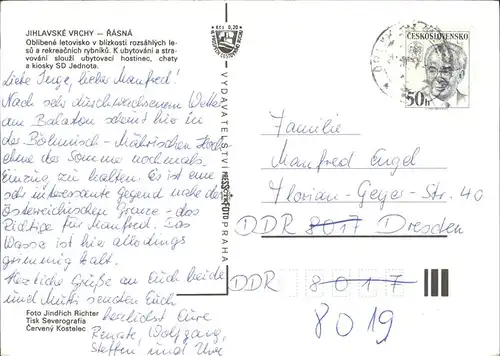 JIHLAVSKÉ VRCHY — ŘÁSNÁ
Oblíbené letovisko v blízkosti rozsáhlých le-
sů a rekreačních rybníků. K ubytování a stra-
vování slouží ubytovací hostinec, chaty
a kiosky SD Jednota.
Liebe Inge, lieber Manfred!
Nach sehr durchwachsenem Wetter
am Balaton scheint hier in
der Böhmisch-Mährischen Hoch-
ebene der Sommer nochmals
Einzug zu halten. Es ist eine
sehr interessante Gegend nahe der
Österreichischen Grenze - das
Richtige für Manfred. Das
Wasser ist hier allerdings
grimmig kalt.
Herzliche Grüße an Euch beide
und Mutti senden Euch
herzlichst Eure
Renate, Wolfgang,
Steffen und Uwe
Foto Jindřich Richter
Tisk Severografia
Červený Kostelec
Kčs 0,20
VYDAVATELSTVÍ PRESSFOTO PRAHA
ČESKOSLOVENSKO
50h
Familie
Manfred Engel
Florian-Geyer-Str. 40
DDR 8017 Dresden
DDR 8017
8019